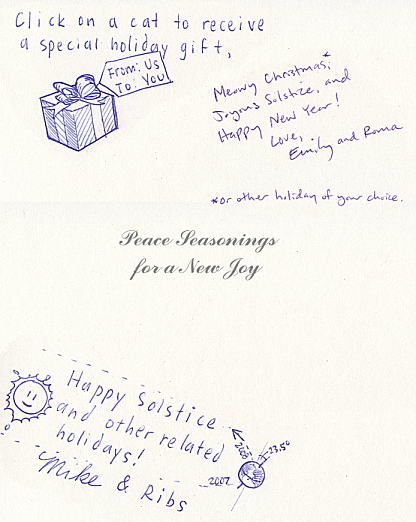 Click on a cat to receive
a special holiday gift,
From: Us
To: You
Meowy Christmas,*
Joyous Solstice, and
Happy New Year!
Love,
Emily and Roma
*or other holiday of your choice.
Peace Seasonings
for a New Joy
Happy Solstice
and other related
holidays!
Mike & Ribs
2008
23.5°
2007